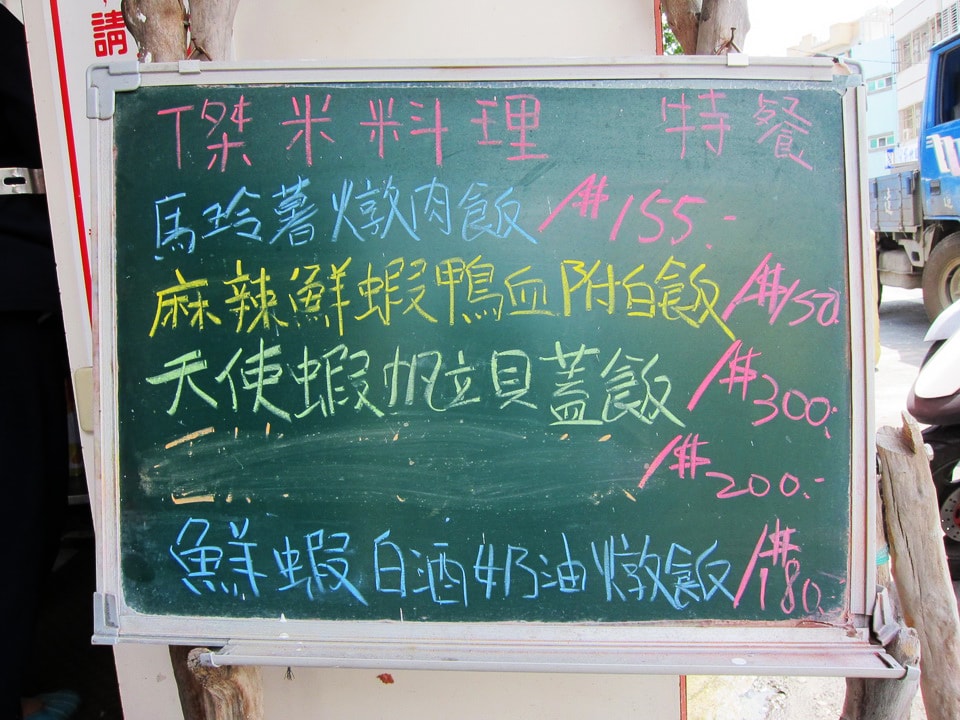 請
傑米料理 特餐
馬玲薯燉肉飯 /#155.-
麻辣鮮蝦鴨血附白飯 /#150.
天使蝦帆立貝蓋飯 /#300.-
/#200.-
鮮蝦白酒奶油燉飯 /#180.